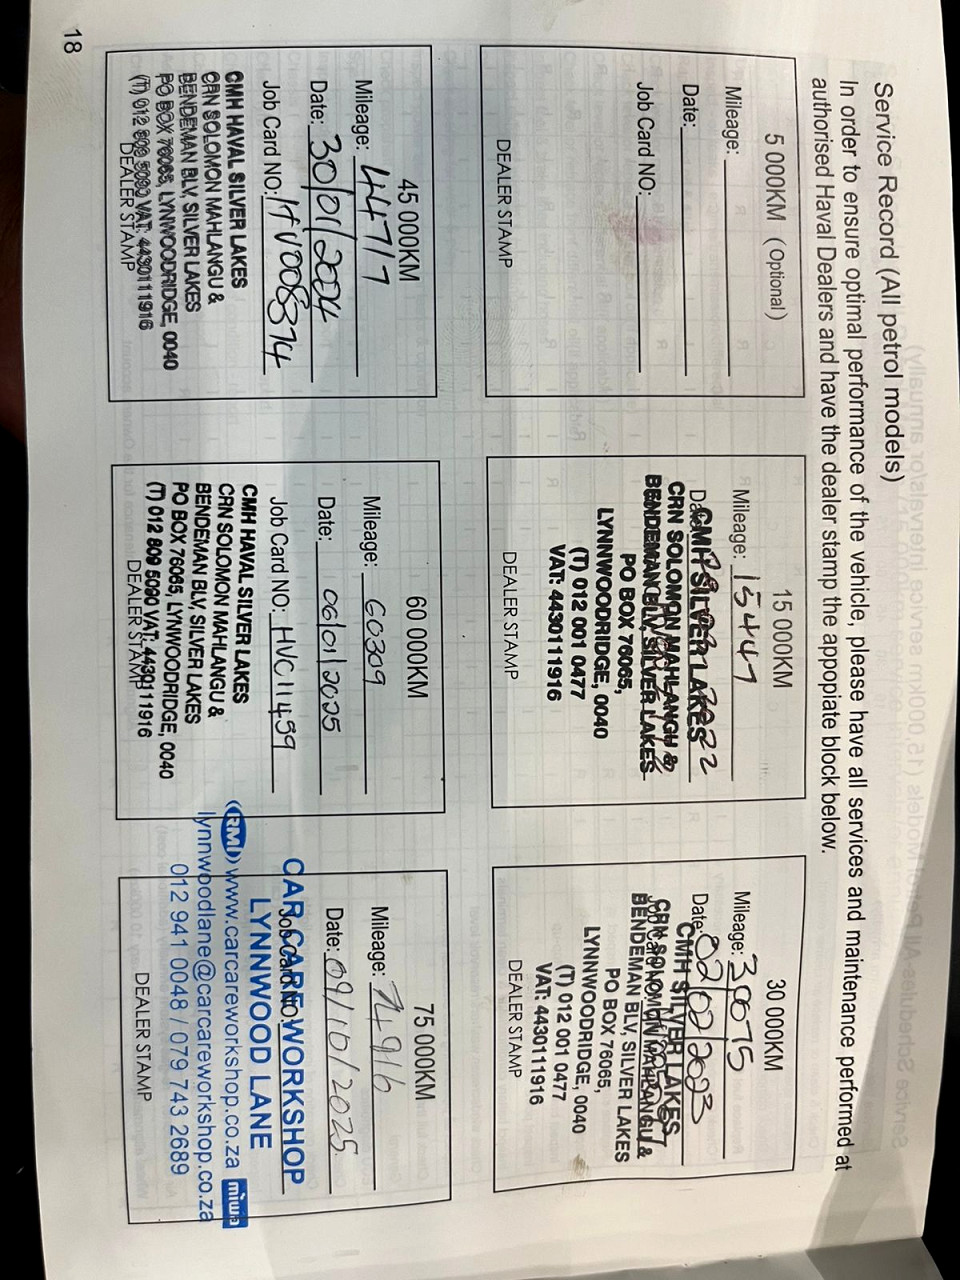 Service Record (All petrol models)
In order to ensure optimal performance of the vehicle, please have all services and maintenance performed at
authorised Haval Dealers and have the dealer stamp the appopiate block below.
5 000KM (Optional)
Mileage:
Date:
Job Card NO:
DEALER STAMP
15 000KM
Mileage: 15447
Date: 2022
CMH SILVER LAKES
CRN SOLOMON MAHLANGU &
BENDEMAN BLV, SILVER LAKES
PO BOX 76065,
LYNNWOODRIDGE, 0040
(T) 012 001 0477
VAT: 4430111916
DEALER STAMP
30 000KM
Mileage: 30075
Date: 02/02/2023
CMH SILVER LAKES
Job Card NO:
CRN SOLOMON MAHLANGU &
BENDEMAN BLV, SILVER LAKES
PO BOX 76065,
LYNNWOODRIDGE, 0040
(T) 012 001 0477
VAT: 4430111916
DEALER STAMP
45 000KM
Mileage: 44717
Date: 30/01/2024
Job Card NO: HV008374
CMH HAVAL SILVER LAKES
CRN SOLOMON MAHLANGU &
BENDEMAN BLV, SILVER LAKES
PO BOX 76065, LYNWOODRIDGE, 0040
(T) 012 809 5090 VAT: 4430111916
DEALER STAMP
60 000KM
Mileage: 60309
Date: 06/01/2025
Job Card NO: HVC11459
CMH HAVAL SILVER LAKES
CRN SOLOMON MAHLANGU &
BENDEMAN BLV, SILVER LAKES
PO BOX 76065, LYNWOODRIDGE, 0040
(T) 012 809 5090 VAT: 4430111916
DEALER STAMP
75 000KM
Mileage: 74916
Date: 09/10/2025
Job Card NO:
CAR CARE WORKSHOP
LYNNWOOD LANE
RMI www.carcareworkshop.co.za miwa
lynnwoodlane@carcareworkshop.co.za
012 941 0048 / 079 743 2689
DEALER STAMP
18